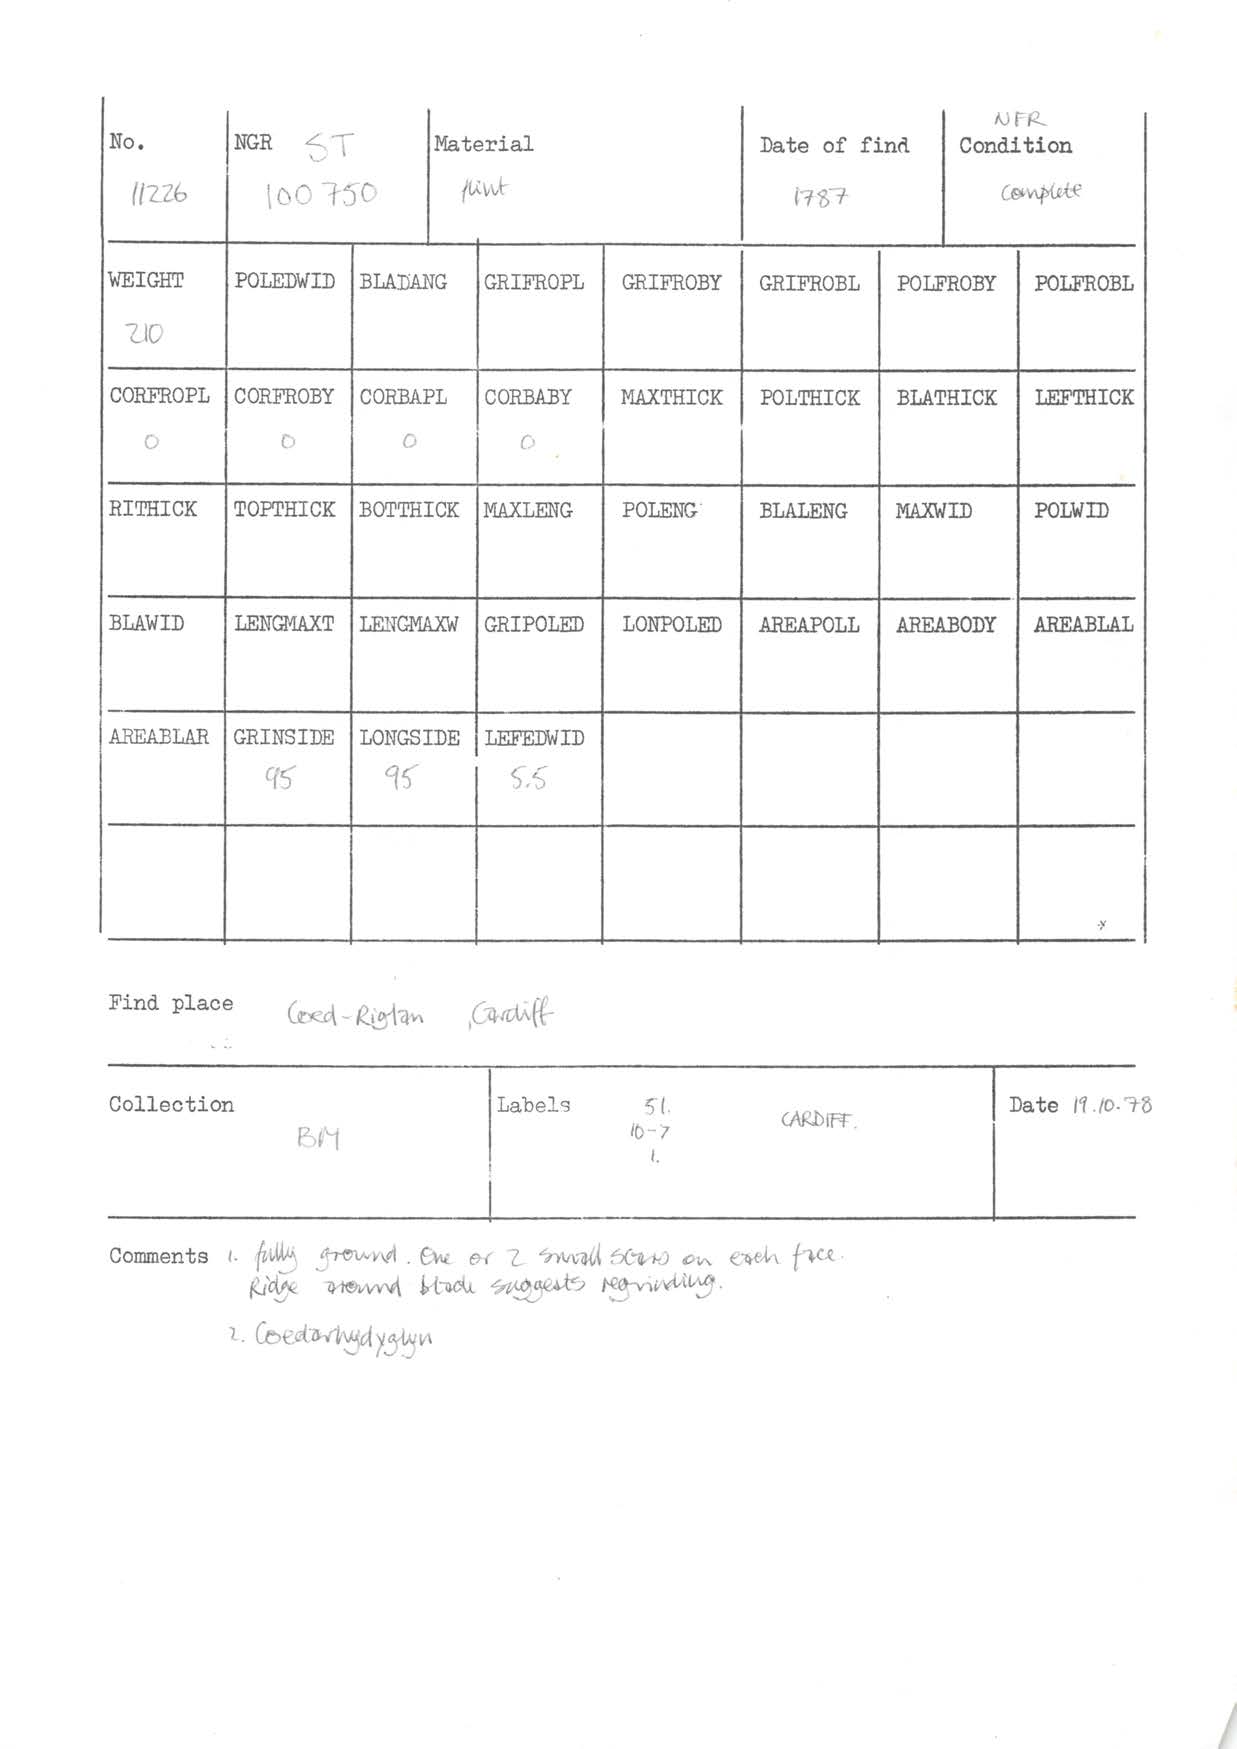 NFR
No. NGR ST Material Date of find Condition
11226 100 750 flint 1787 complete
WEIGHT POLEDWID BLADANG GRIFROPL GRIFROBY GRIFROBL POLFROBY POLFROBL
210
CORFROPL CORFROBY CORBAPL CORBABY MAXTHICK POLTHICK BLATHICK LEFTHICK
0 0 0 0
RITHICK TOPTHICK BOTTHICK MAXLENG POLENG BLALENG MAXWID POLWID
BLAWID LENGMAXT LENGMAXW GRIPOLED LONPOLED AREAPOLL AREABODY AREABLAL
AREABLAR GRINSIDE LONGSIDE LEFEDWID
95 95 5.5
Find place Coed-Riglan, Cardiff
Collection Labels 51. CARDIFF. Date 19.10.78
BM 10-7
1.
Comments 1. fully ground. One or 2 small scars on each face.
Ridge around blade suggests regrinding.
2. Coedarhydyglyn